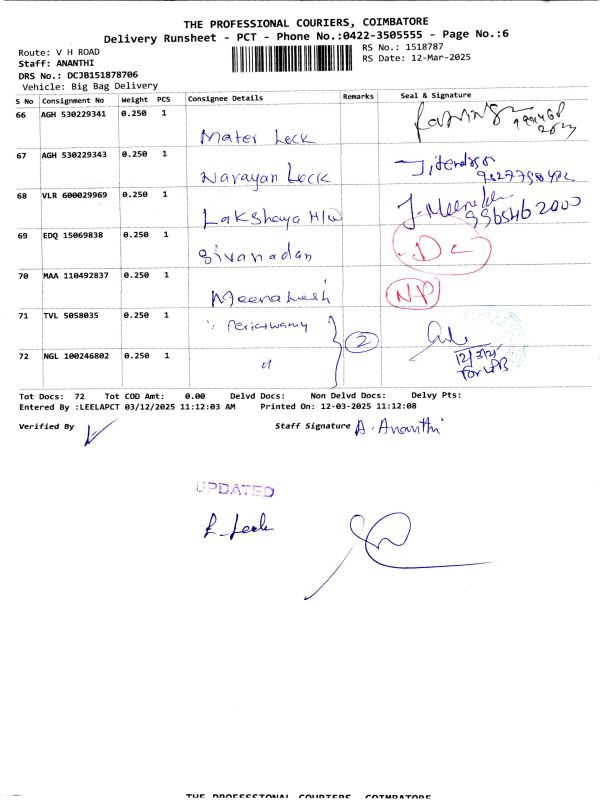 THE PROFESSIONAL COURIERS, COIMBATORE
Delivery Runsheet - PCT - Phone No.:0422-3505555 - Page No.:6
Route: V H ROAD
RS No.: 1518787
Staff: ANANTHI
RS Date: 12-Mar-2025
DRS No.: DCJB151878706
Vehicle: Big Bag Delivery
S No Consignment No Weight PCS Consignee Details Remarks Seal & Signature
66 AGH 530229341 0.250 1
Mater Lock
67 AGH 530229343 0.250 1
Narayan Lock
68 VLR 600029969 0.250 1
Lakshaya H/W
69 EDQ 15069838 0.250 1
Sivanadan
70 MAA 110492837 0.250 1
Meenakesh
NP
71 TVL 5058035 0.250 1
Periaswamy
2
72 NGL 100246802 0.250 1
"
12/3/25
Tot Docs: 72 Tot COD Amt: 0.00 Delvd Docs: Non Delvd Docs: Delvy Pts:
Entered By :LEELAPCT 03/12/2025 11:12:03 AM Printed On: 12-03-2025 11:12:08
Verified By
Staff Signature A. Ananthi
UPDATED
THE PROFESSIONAL COURIERS, COIMBATORE